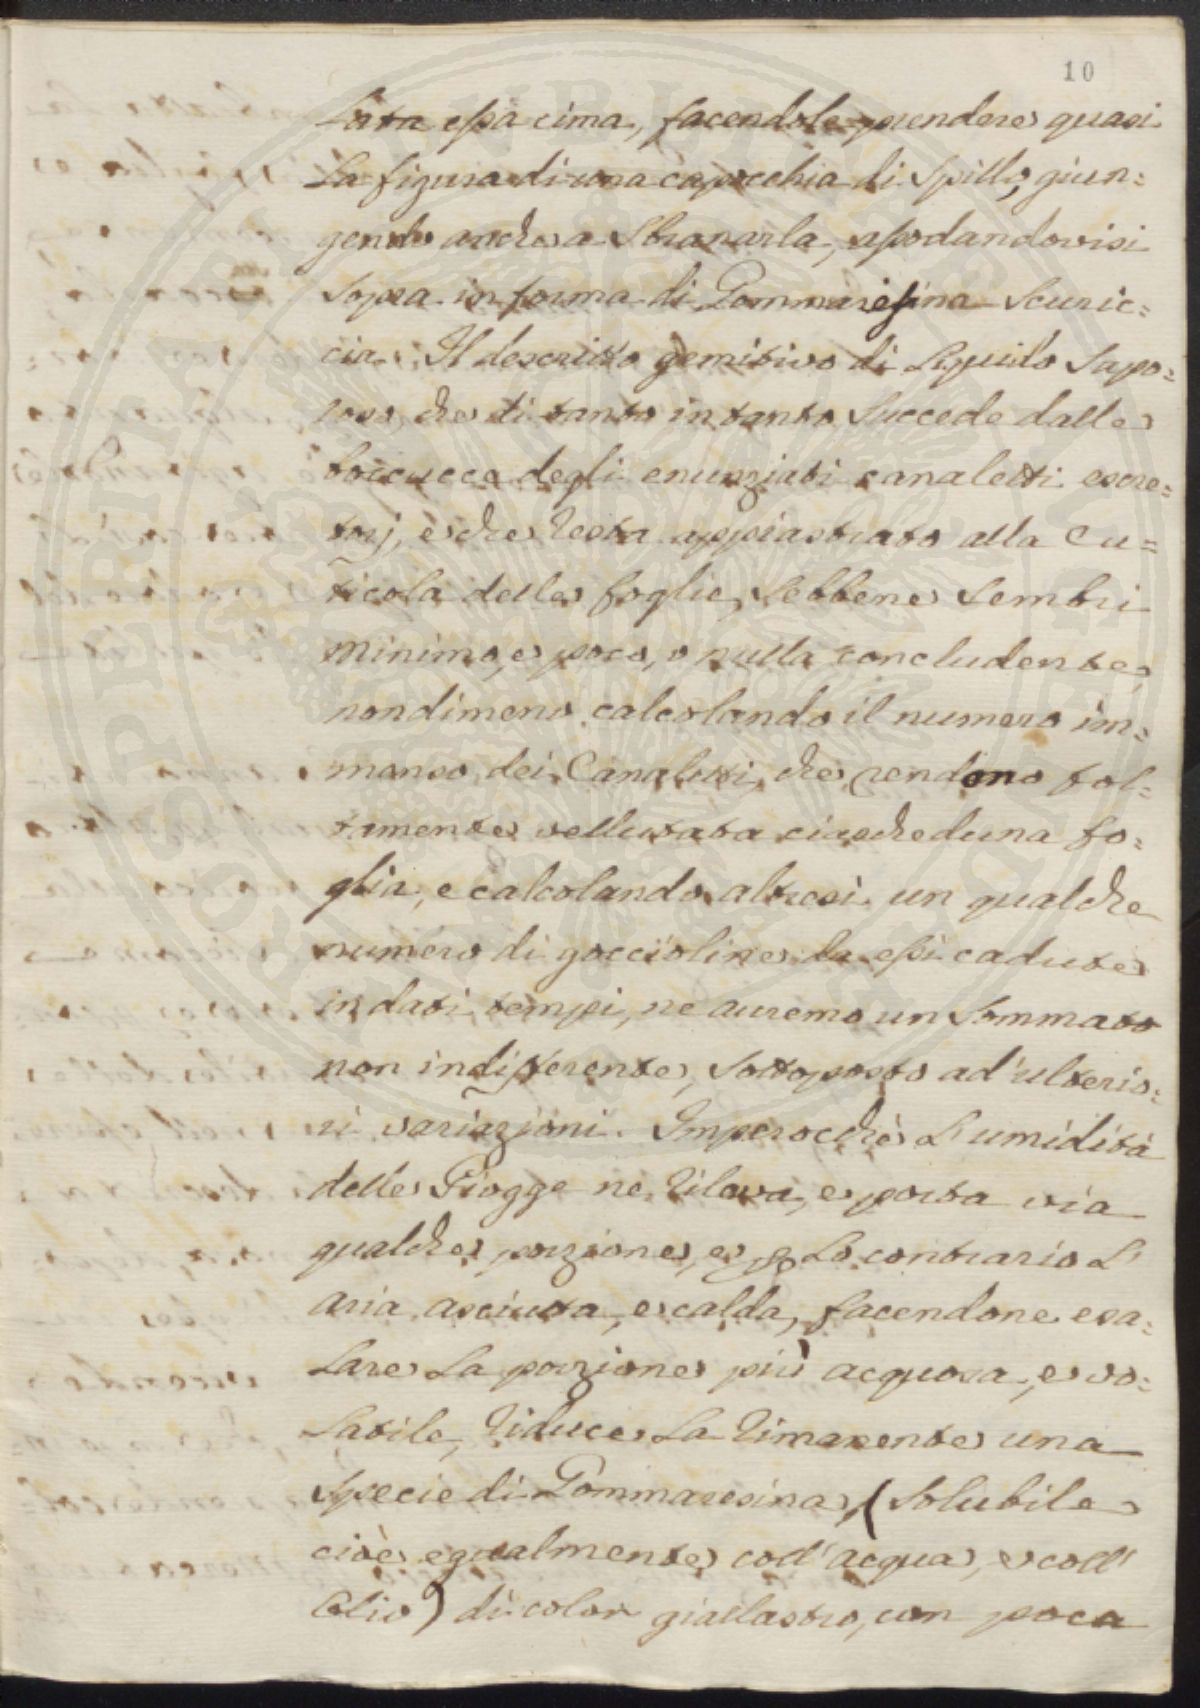 10
lata essa cima, facendole prendere quasi
La figura di una capocchia di Spillo, giun=
gendo anche a Stranarla, assodandovisi
sopra in forma di Gommaresina Scuric=
cia. Il descritto gemitivo di Liquido Sapo=
roso, che di tanto in tanto Succede dalle
boccucce degli enunziati canaletti escre=
torj, e che resta appiastrato alla Cu=
ticola delle foglie, Sebbene Sembri
minimo, e poco, o nulla concludente,
nondimeno calcolando il numero im=
menso dei Canaletti, che rendono fol=
tamente vellutata ciascheduna fo=
glia, e calcolando altresi un qualche
numero di goccioline da essi cadute
in dati tempi, ne auremo un Sommato
non indifferente, Sottoposto ad'ulterio=
ri variazioni. Imperocchè L'umidità
delle Piogge ne rileva, e porta via
qualche porzione, e p Lo contrario L'
aria asciutta, e calda, facendone esa=
Lare La porzione più acquosa, e vo=
Latile, riduce La rimanente una
Specie di Gommaresina, (Solubile
cioè egualmente coll'acqua, e coll'
Olio) di color giallastro, con poca